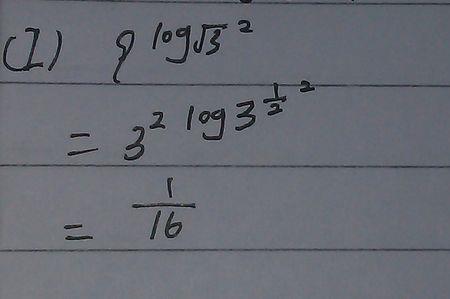 (I) 9 log√3 2
= 3 2 log 3 1/2 2
= 1/16